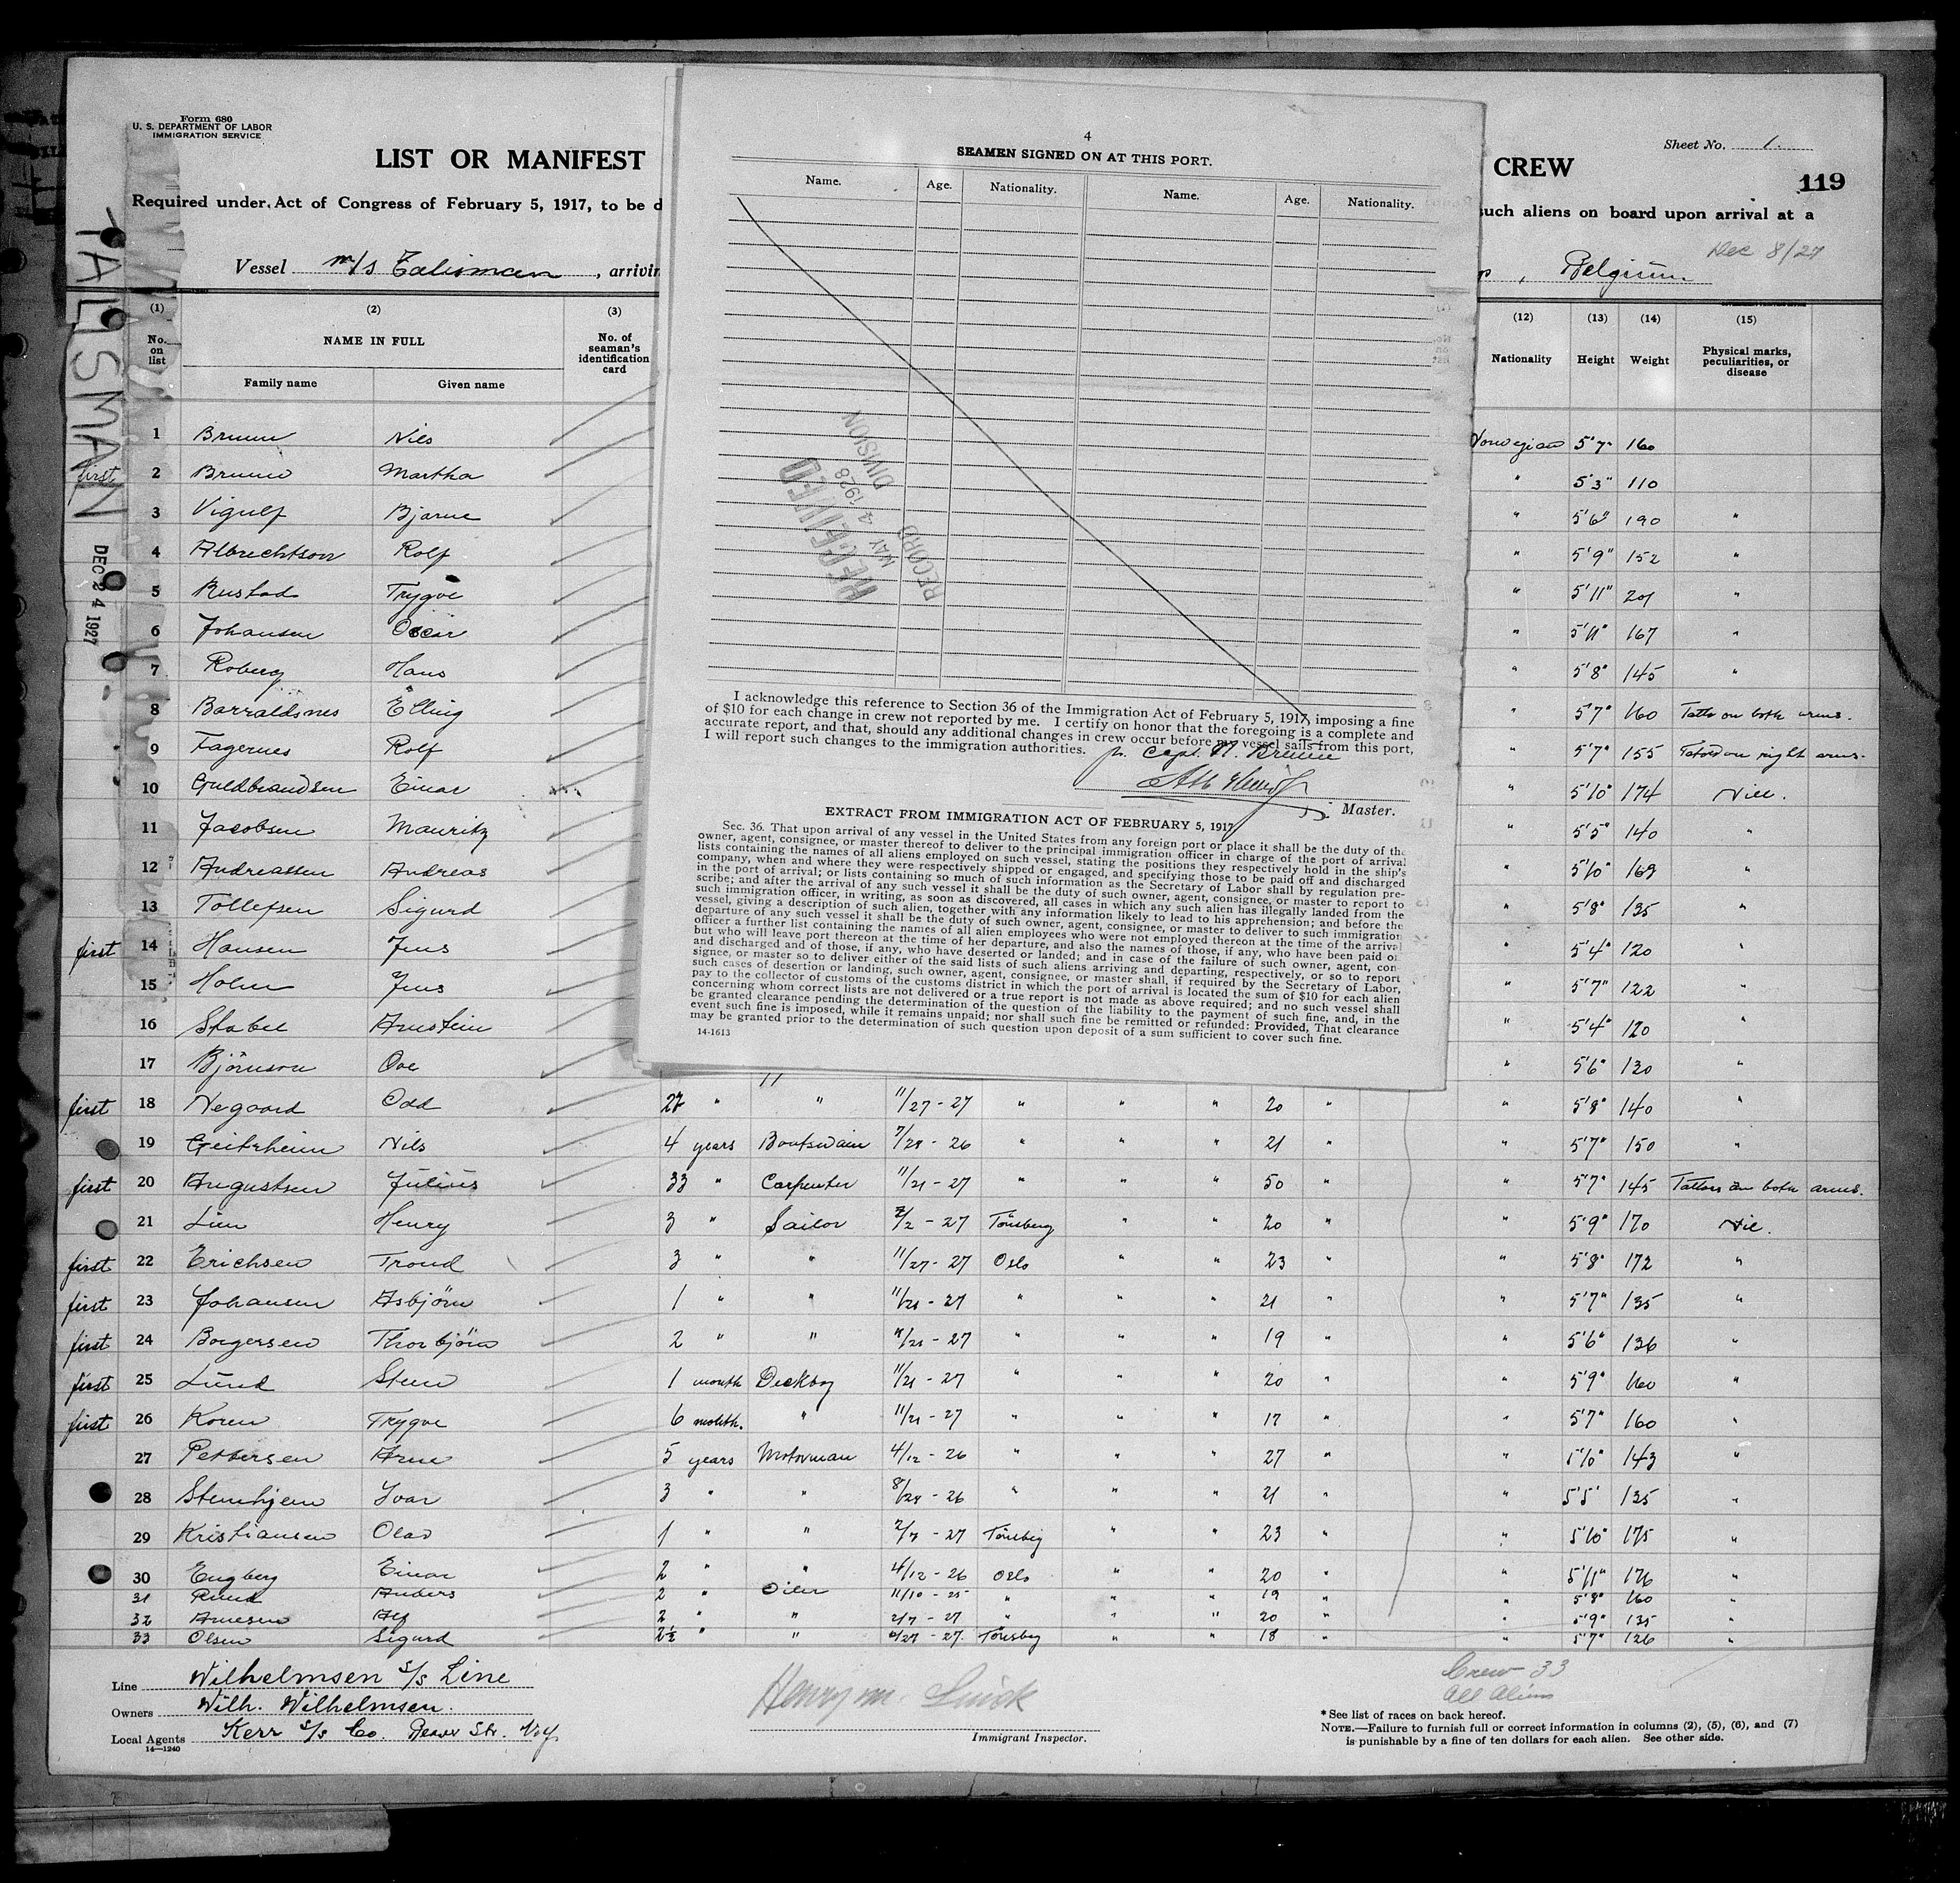 Form 680
U. S. DEPARTMENT OF LABOR
IMMIGRATION SERVICE
LIST OR MANIFEST
CREW
Sheet No. 1.
119
Required under Act of Congress of February 5, 1917, to be d
such aliens on board upon arrival at a
Vessel m/s Talisman, arrivin
, Belgium
Dec 8/27
TALISMAN
DEC 24 1927
(1) (2) (3) (12) (13) (14) (15)
No. on list
NAME IN FULL
Family name Given name
No. of seaman's identification card
Nationality Height Weight Physical marks, peculiarities, or disease
1 Bruun Nils Norwegian 5'7" 160
first 2 Bruun Martha " 5'3" 110
3 Vigulf Bjarne " 5'6" 190 "
4 Albrechtson Rolf " 5'9" 152 "
5 Rustad Trygve " 5'11" 201 "
6 Johansen Oscar " 5'11" 167 "
7 Roberg Hans " 5'8" 145 "
8 Barraldsnes Elling " 5'7" 160 Tatto on both arms.
9 Fagernes Rolf " 5'7" 155 Tatoo on right arms.
10 Guldbrandsen Einar " 5'10" 174 Nill.
11 Jacobsen Mauritz " 5'5" 140 "
12 Andreassen Andreas " 5'10" 169 "
13 Tollefsen Sigurd " 5'8" 135 "
first 14 Hansen Jens " 5'4" 120 "
15 Holm Jens " 5'7" 122 "
16 Stabel Arnstein " 5'4" 120 "
17 Björnson Ove " 5'6" 130 "
first 18 Negaard Odd 27 " " 11/27-27 " " " 20 " " 5'8" 140 "
19 Geitrheim Nils 4 years Boatswain 7/28-26 " " " 21 " " 5'7" 150 "
first 20 Augustsen Julius 33 " Carpenter 11/21-27 " " " 50 " " 5'7" 145 Tattoos on both arms.
21 Lien Henry 3 " Sailor 2/2-27 Tönsberg " " 20 " " 5'9" 170 Nil.
first 22 Erichsen Trond 3 " " 11/27-27 Oslo " " 23 " " 5'8" 172 "
first 23 Johansen Asbjörn 1 " " 11/21-27 " " " 21 " " 5'7" 135 "
first 24 Borgersen Thorbjörn 2 " " 11/21-27 " " " 19 " " 5'6" 136 "
first 25 Lund Steen 1 month Deckboy 11/21-27 " " " 20 " " 5'9" 160 "
first 26 Koren Trygve 6 month. " 11/21-27 " " " 17 " " 5'7" 160 "
27 Pettersen Arne 5 years Motorman 4/12-26 " " " 27 " " 5'10" 143 "
28 Stenhjem Ivar 3 " " 8/28-26 " " " 21 " " 5'5" 135 "
29 Kristiansen Olav 1 " " 2/7-27 Tönsbg " " 23 " " 5'10" 175 "
30 Engberg Einar 2 " " 4/12-26 Oslo " " 20 " " 5'11" 176 "
31 Ruud Anders 2 " Oiler 11/10-25 " " " 19 " " 5'8" 160 "
32 Arnesen Alf 2 " " 2/7-27 " " " 20 " " 5'9" 135 "
33 Olsen Sigurd 2½ " " 6/27-27. Tönsbg " " 18 " " 5'7" 126 "
Line Wilhelmsen S/S Line
Owners Wilh. Wilhelmsen.
Local Agents Kerr S/s Co. Beaver Str. N.Y.
14—1240
Henry M.
Immigrant Inspector.
Crew 33
All Aliens
* See list of races on back hereof.
NOTE.—Failure to furnish full or correct information in columns (2), (5), (6), and (7)
is punishable by a fine of ten dollars for each alien. See other side.
4
SEAMEN SIGNED ON AT THIS PORT.
Name. Age. Nationality. Name. Age. Nationality.
RECEIVED
MAY 4 1928
RECORD DIVISION
I acknowledge this reference to Section 36 of the Immigration Act of February 5, 1917, imposing a fine
of $10 for each change in crew not reported by me. I certify on honor that the foregoing is a complete and
accurate report, and that, should any additional changes in crew occur before my vessel sails from this port,
I will report such changes to the immigration authorities.
Capt. N. Bruun
Master.
EXTRACT FROM IMMIGRATION ACT OF FEBRUARY 5, 1917
Sec. 36. That upon arrival of any vessel in the United States from any foreign port or place it shall be the duty of the
owner, agent, consignee, or master thereof to deliver to the principal immigration officer in charge of the port of arrival
lists containing the names of all aliens employed on such vessel, stating the positions they respectively hold in the ship's
company, when and where they were respectively shipped or engaged, and specifying those to be paid off and discharged
in the port of arrival; or lists containing so much of such information as the Secretary of Labor shall by regulation pre-
scribe; and after the arrival of any such vessel it shall be the duty of such owner, agent, consignee, or master to report to
such immigration officer, in writing, as soon as discovered, all cases in which any such alien has illegally landed from the
vessel, giving a description of such alien, together with any information likely to lead to his apprehension; and before the
departure of any such vessel it shall be the duty of such owner, agent, consignee, or master to deliver to such immigration
officer a further list containing the names of all alien employees who were not employed thereon at the time of the arrival
but who will leave port thereon at the time of her departure, and also the names of those, if any, who have been paid of
and discharged and of those, if any, who have deserted or landed; and in case of the failure of such owner, agent, con-
signee, or master so to deliver either of the said lists of such aliens arriving and departing, respectively, or so to report
such cases of desertion or landing, such owner, agent, consignee, or master shall, if required by the Secretary of Labor,
pay to the collector of customs of the customs district in which the port of arrival is located the sum of $10 for each alien
concerning whom correct lists are not delivered or a true report is not made as above required; and no such vessel shall
be granted clearance pending the determination of the question of the liability to the payment of such fine, and, in the
event such fine is imposed, while it remains unpaid; nor shall such fine be remitted or refunded: Provided, That clearance
may be granted prior to the determination of such question upon deposit of a sum sufficient to cover such fine.
14-1613